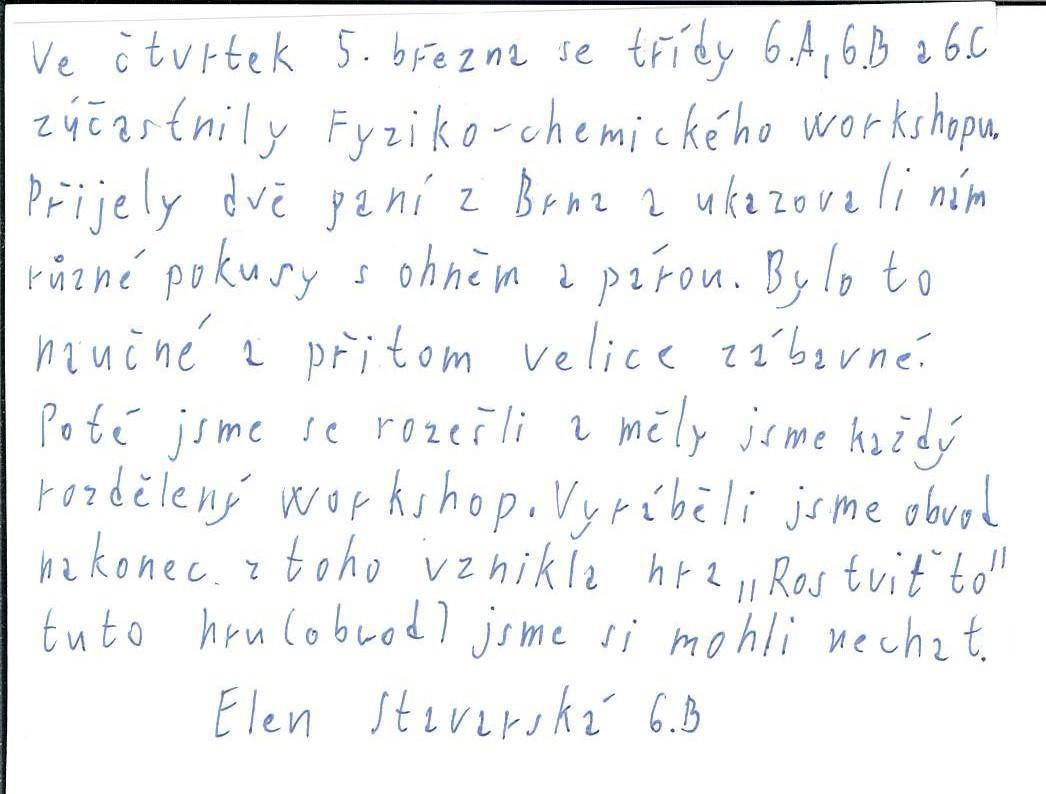 Ve čtvrtek 5. března se třídy 6.A, 6.B a 6.C
zúčastnily Fyziko-chemického workshopu.
Přijely dvě paní z Brna a ukazovali nám
různé pokusy s ohněm a párou. Bylo to
naučné a přitom velice zábavné.
Poté jsme se rozešli a měly jsme každý
rozdělený workshop. Vyráběli jsme obvod
nakonec z toho vznikla hra „Rostviť to"
tuto hru (obvod) jsme si mohli nechat.
Elen Stavarská 6.B